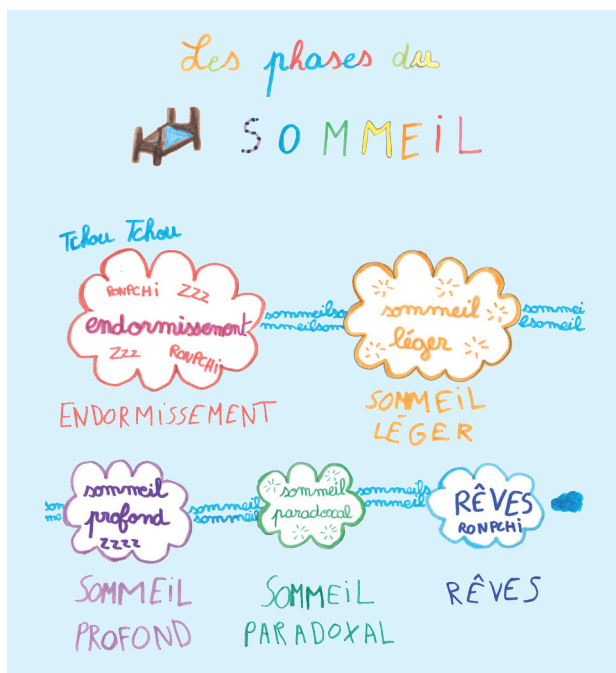 Les phases du
SOMMEIL
Tchou Tchou
RONPCHI ZZZ
endormissement
ZZZ RONPCHI
sommeilso
mmeilsom
sommeil
léger
sommei
lsomeil
ENDORMISSEMENT
SOMMEIL
LÉGER
som
me
sommeil
profond
ZZZZ
sommeil
sommeil
sommeil
paradoxal
sommeils
ommeil
RÊVES
RONPCHI
SOMMEIL
PROFOND
SOMMEIL
PARADOXAL
RÊVES